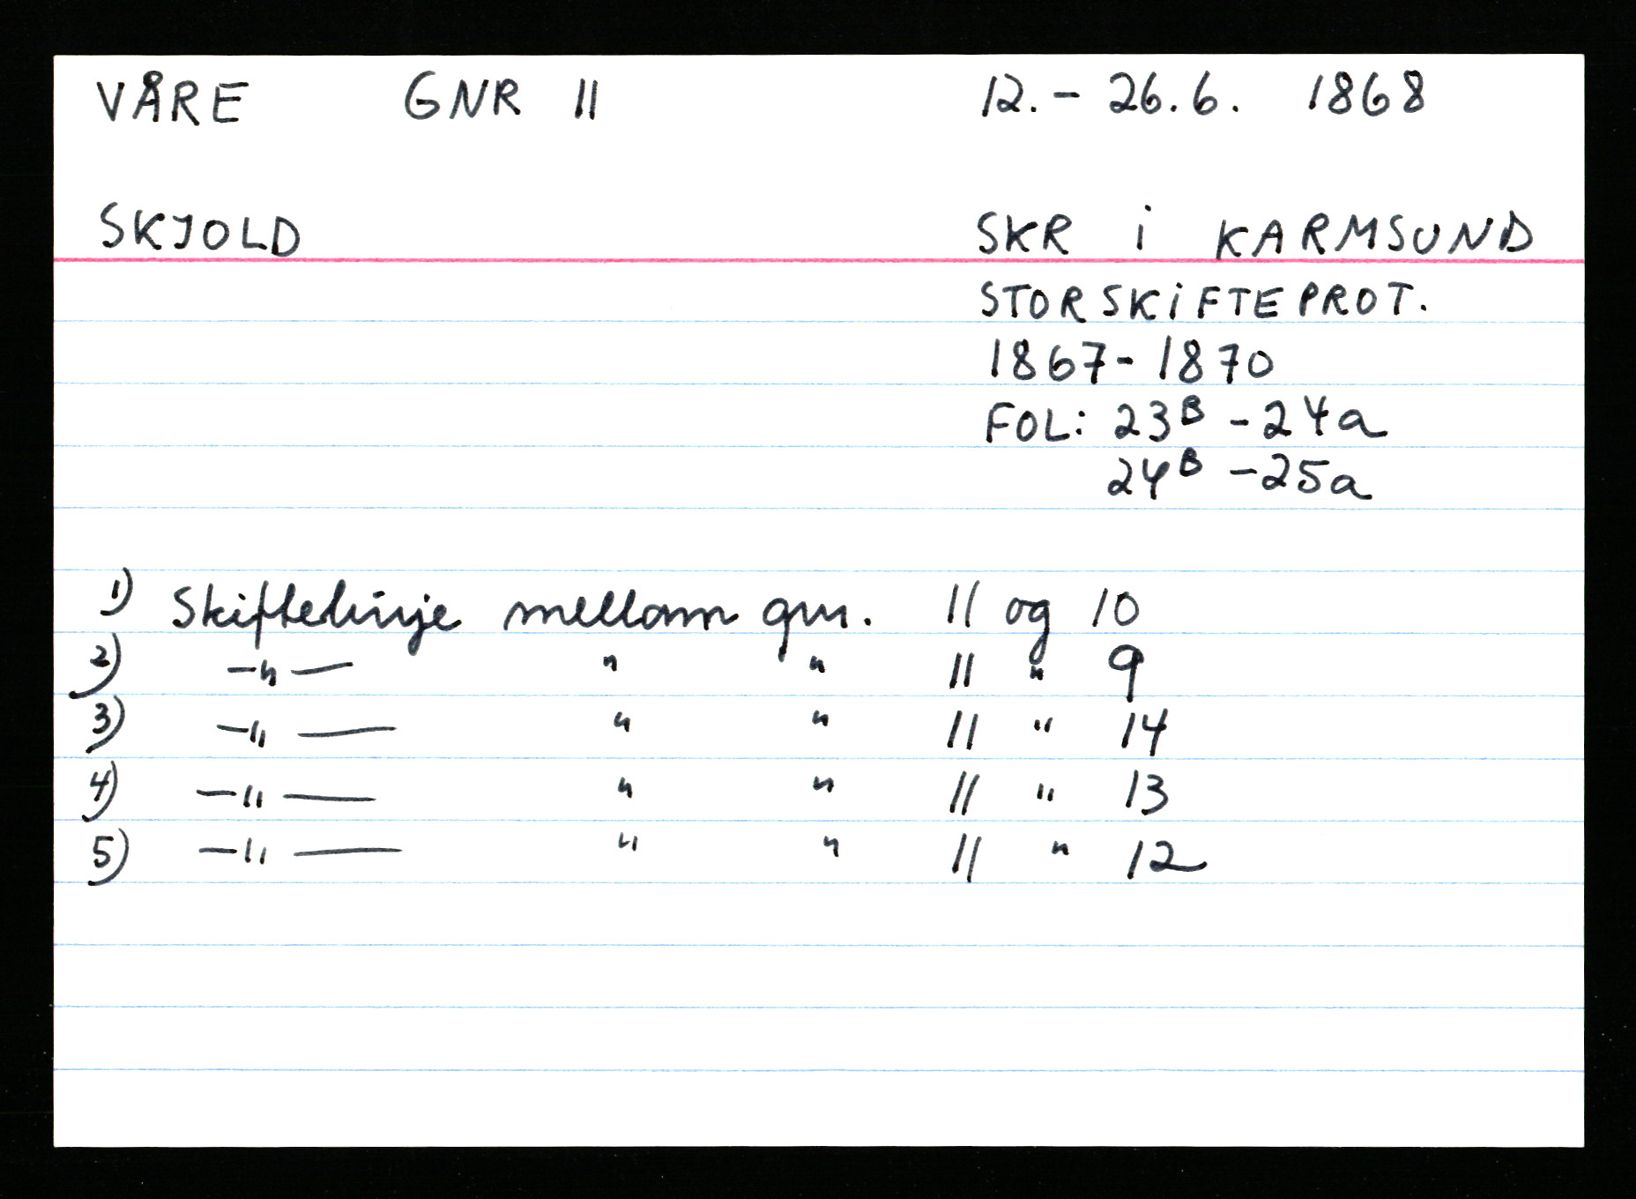 VÅRE GNR 11 12.- 26.6. 1868
SKJOLD SKR i KARMSUND
STORSKIFTEPROT.
1867-1870
FOL: 23B -24a
24B -25a
1) Skiftelinje mellom gnr. 11 og 10
2) -"- " " 11 " 9
3) -"- " " 11 " 14
4) -"- " " 11 " 13
5) -"- " " 11 " 12